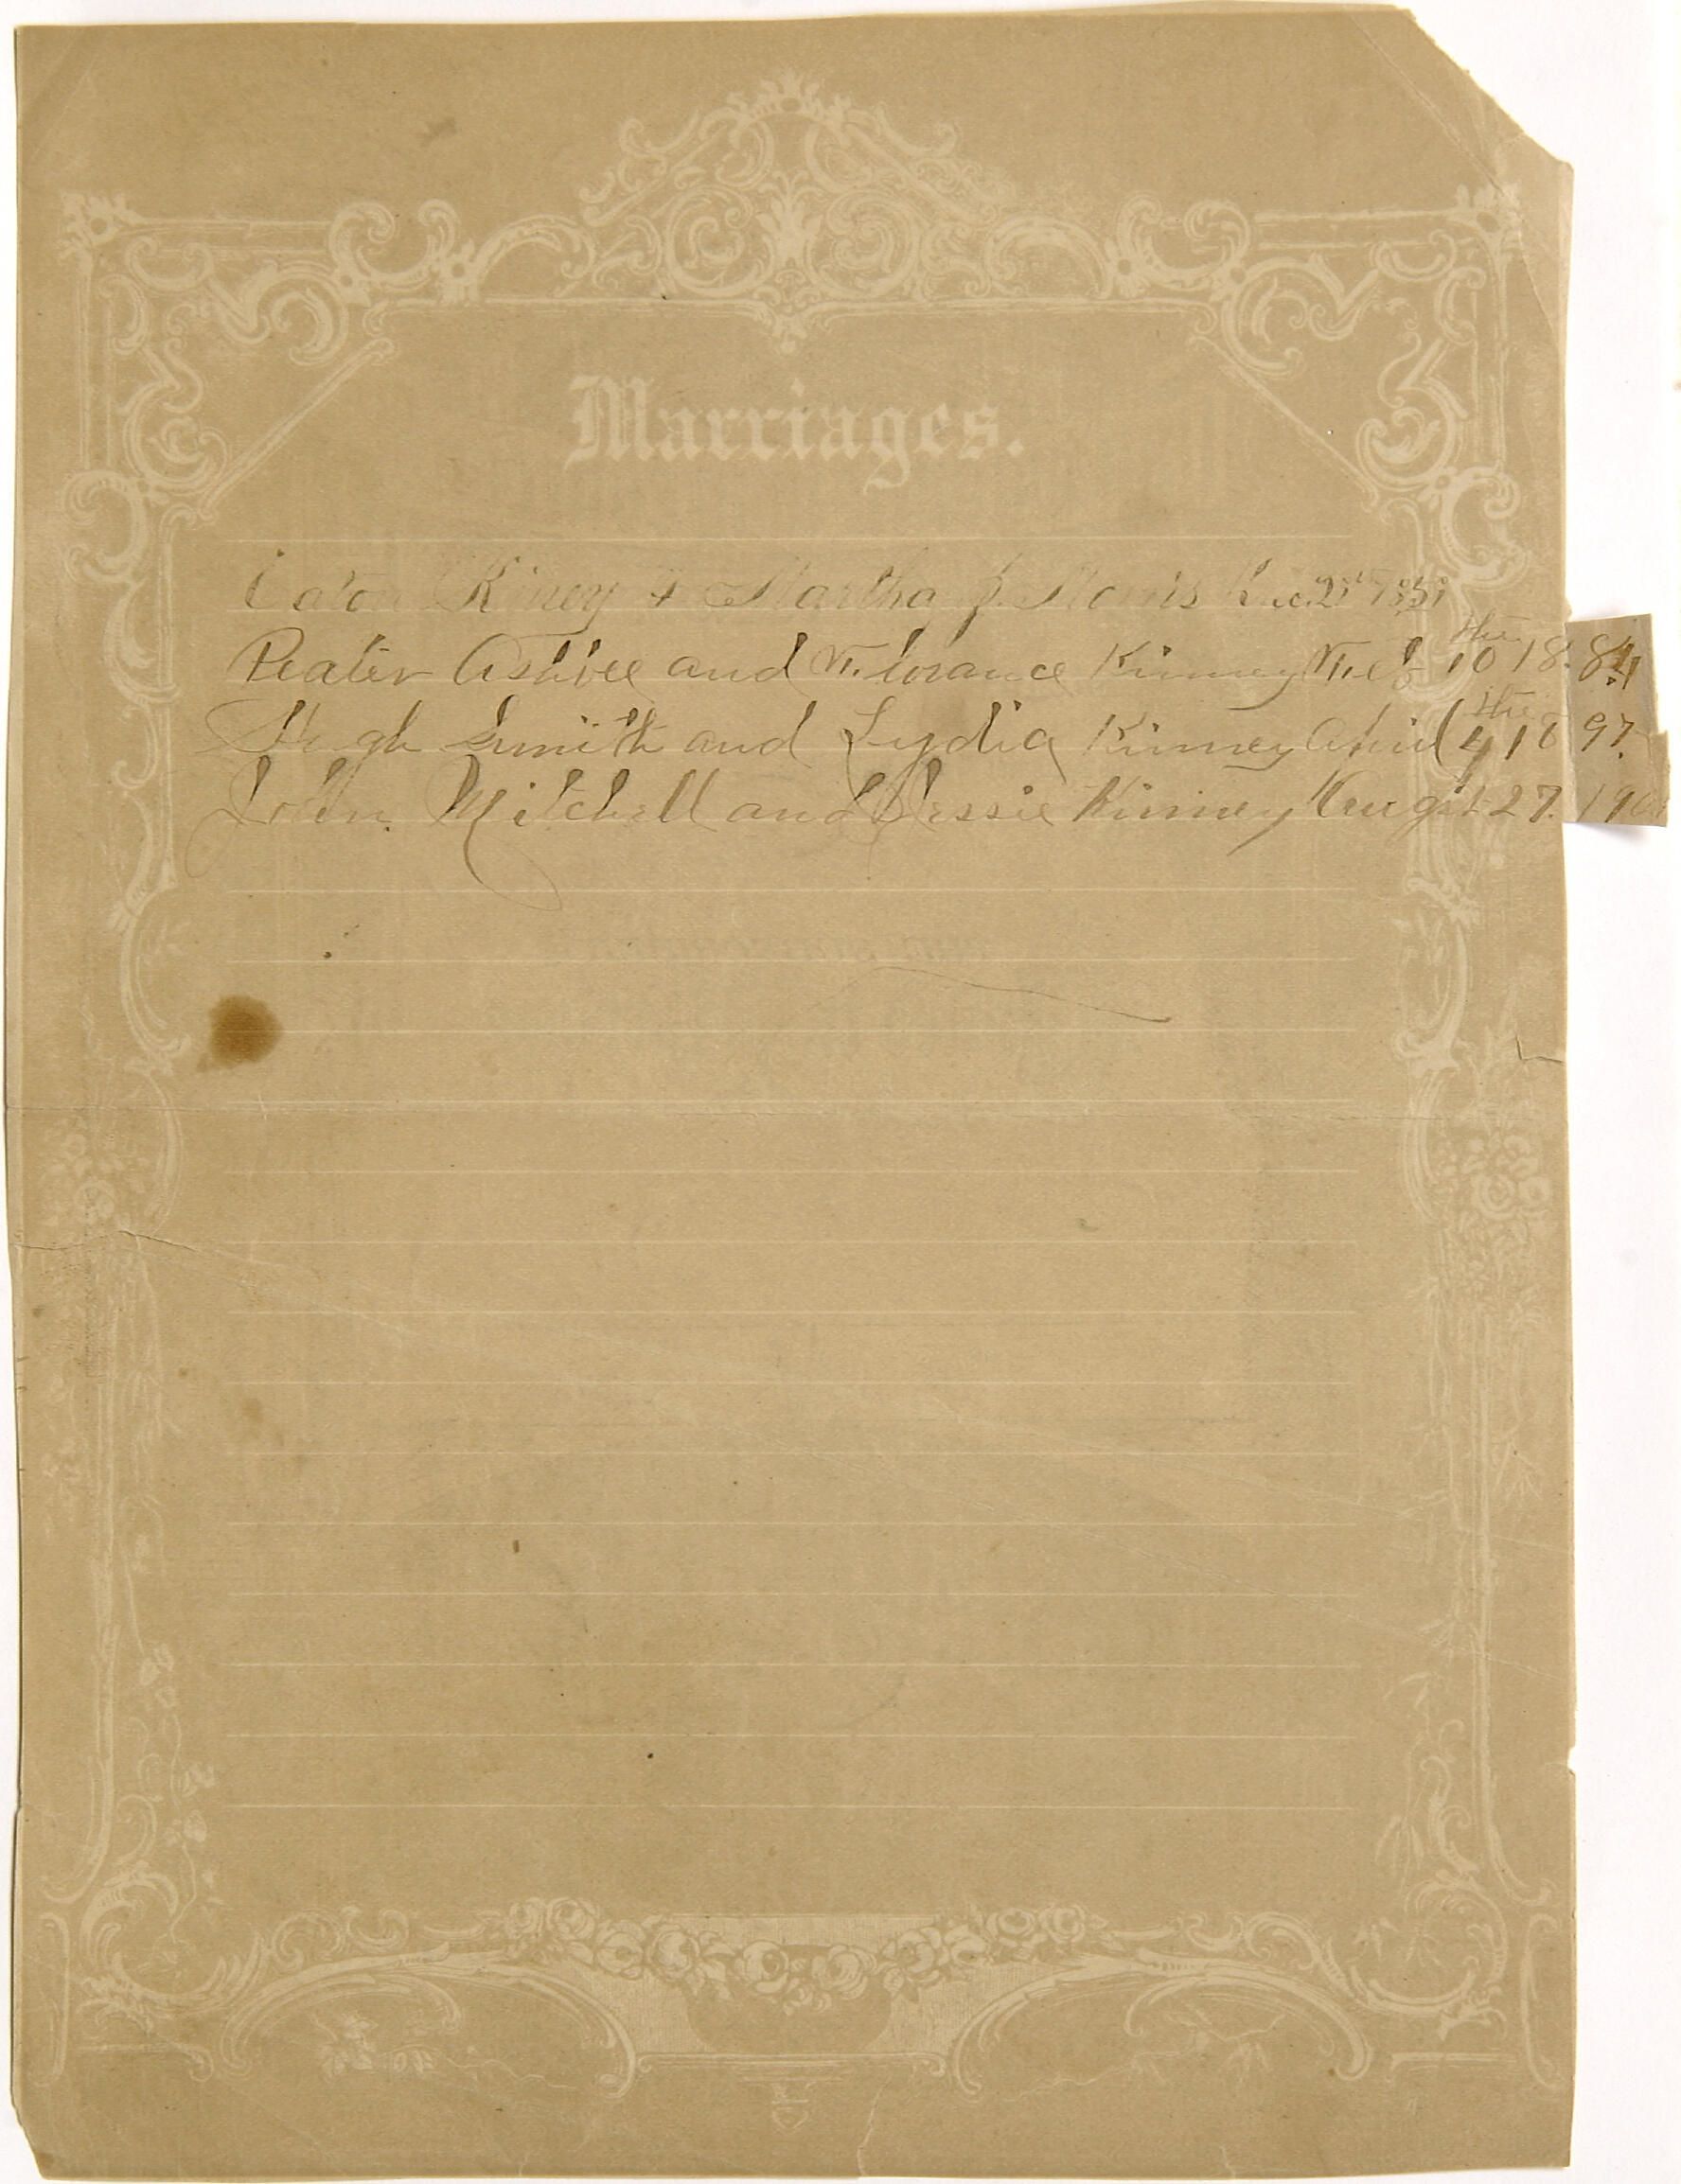 Marriages.
Eaton Kiney & Martha J. Morris Dec. 21st
Peater Ashbee and Florance Kinney Feb 10 the 18.84
Hugh Smith and Lydia Kinney April 4 the 18 97.
John Mitchell and Bessie Kinney Augst 27.